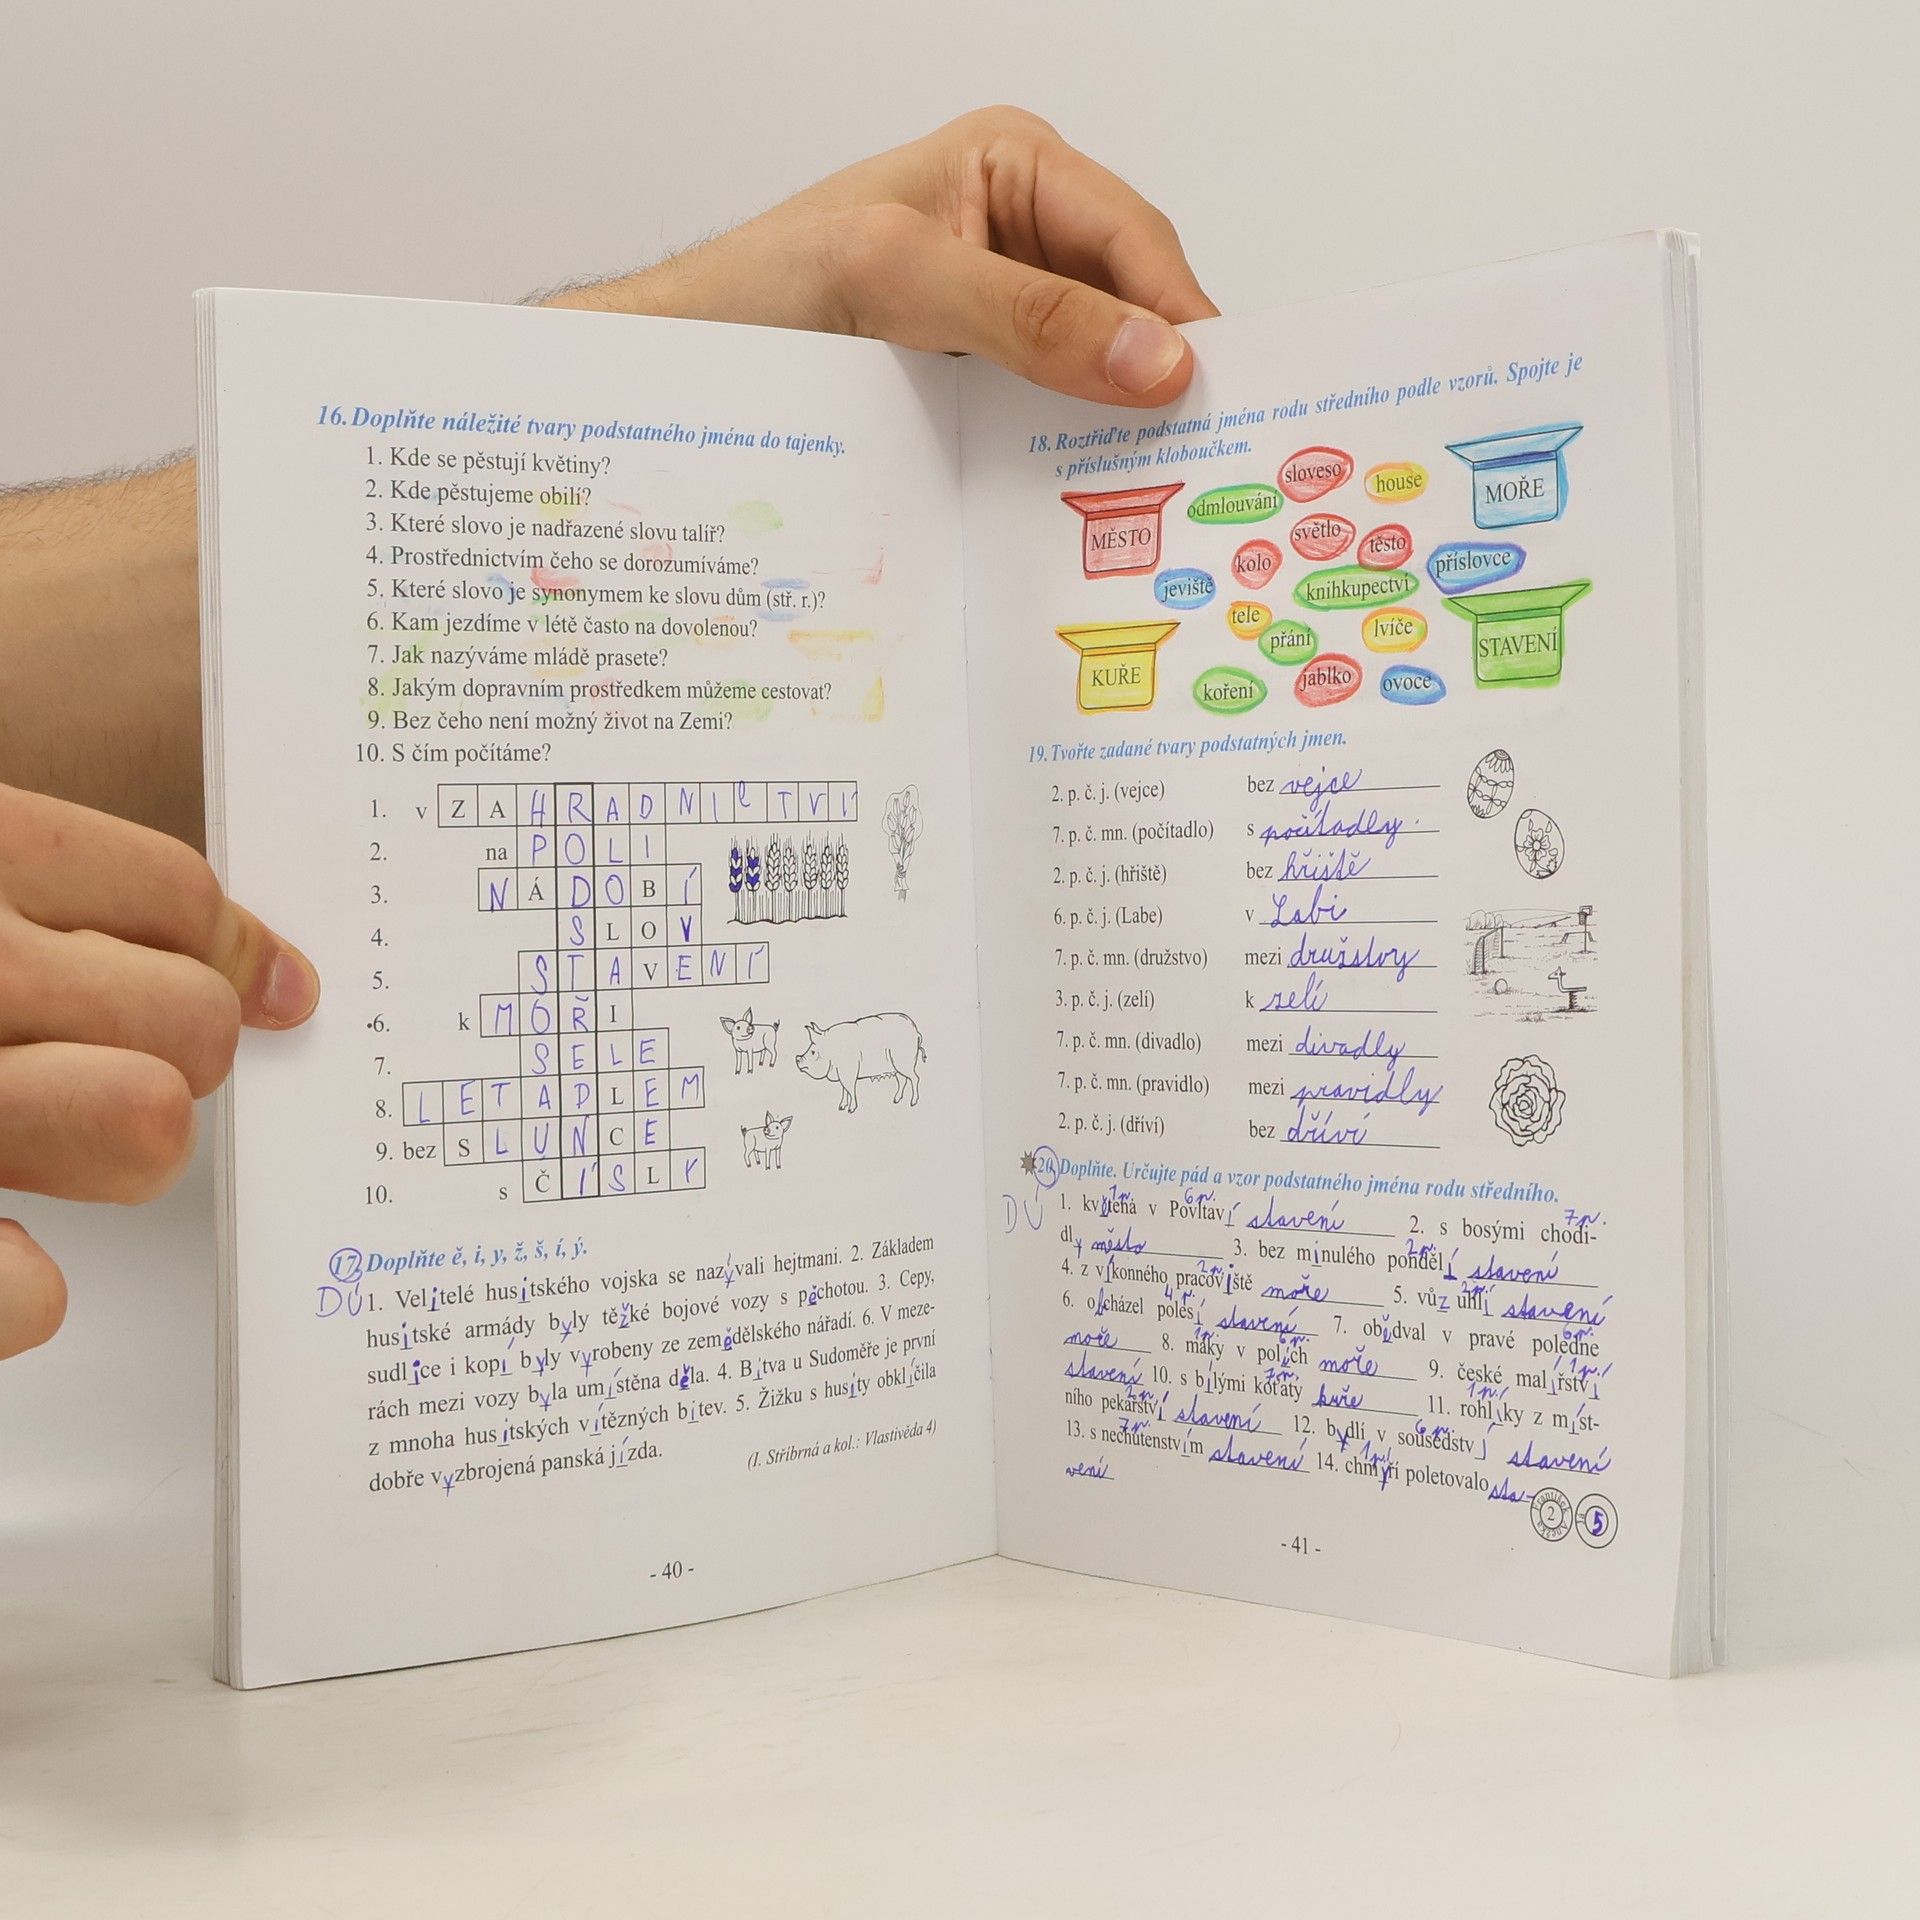 16. Doplňte náležité tvary podstatného jména do tajenky.
1. Kde se pěstují květiny?
2. Kde pěstujeme obilí?
3. Které slovo je nadřazené slovu talíř?
4. Prostřednictvím čeho se dorozumíváme?
5. Které slovo je synonymem ke slovu dům (stř. r.)?
6. Kam jezdíme v létě často na dovolenou?
7. Jak nazýváme mládě prasete?
8. Jakým dopravním prostředkem můžeme cestovat?
9. Bez čeho není možný život na Zemi?
10. S čím počítáme?
1. v ZAHRADNICTVÍ
2. na POLI
3. NÁDOBÍ
4. SLOV
5. STAVENÍ
6. k MOŘI
7. SELE
8. LETADLEM
9. bez SLUNCE
10. s ČÍSLY
17. Doplňte ě, i, y, ž, š, í, ý.
DÚ 1. Velitelé husitského vojska se nazývali hejtmani. 2. Základem
husitské armády byly těžké bojové vozy s pěchotou. 3. Cepy,
sudlice i kopí byly vyrobeny ze zemědělského nářadí. 6. V meze-
rách mezi vozy byla umístěna děla. 4. Bitva u Sudoměře je první
z mnoha husitských vítězných bitev. 5. Žižku s husity obklíčila
dobře vyzbrojená panská jízda.
(I. Stříbrná a kol.: Vlastivěda 4)
- 40 -
18. Roztřiďte podstatná jména rodu středního podle vzorů. Spojte je
s příslušným kloboučkem.
MĚSTO
odmlouvání
sloveso
house
MOŘE
světlo
těsto
kolo
příslovce
jeviště
knihkupectví
tele
přání
lvíče
KUŘE
STAVENÍ
koření
jablko
ovoce
19. Tvořte zadané tvary podstatných jmen.
2. p. č. j. (vejce) bez vejce
7. p. č. mn. (počítadlo) s počítadly
2. p. č. j. (hřiště) bez hřiště
6. p. č. j. (Labe) v Labi
7. p. č. mn. (družstvo) mezi družstvy
3. p. č. j. (zelí) k zelí
7. p. č. mn. (divadlo) mezi divadly
7. p. č. mn. (pravidlo) mezi pravidly
2. p. č. j. (dříví) bez dříví
20. Doplňte. Určujte pád a vzor podstatného jména rodu středního.
DÚ 1. květená v Povltaví stavení 2. s bosými chodi-
dly město 3. bez minulého pondělí stavení
4. z výkonného pracoviště moře 5. vůz uhlí stavení
6. obcházel polesí stavení 7. obědval v pravé poledne
moře 8. máky v polích moře 9. české malířství
stavení 10. s bílými koťaty kuře 11. rohlíky z míst-
ního pekařství stavení 12. bydlí v sousedství stavení
13. s nechutenstvím stavení 14. chmýří poletovalo sta-
vení
František Anežka 2
Já 5
- 41 -